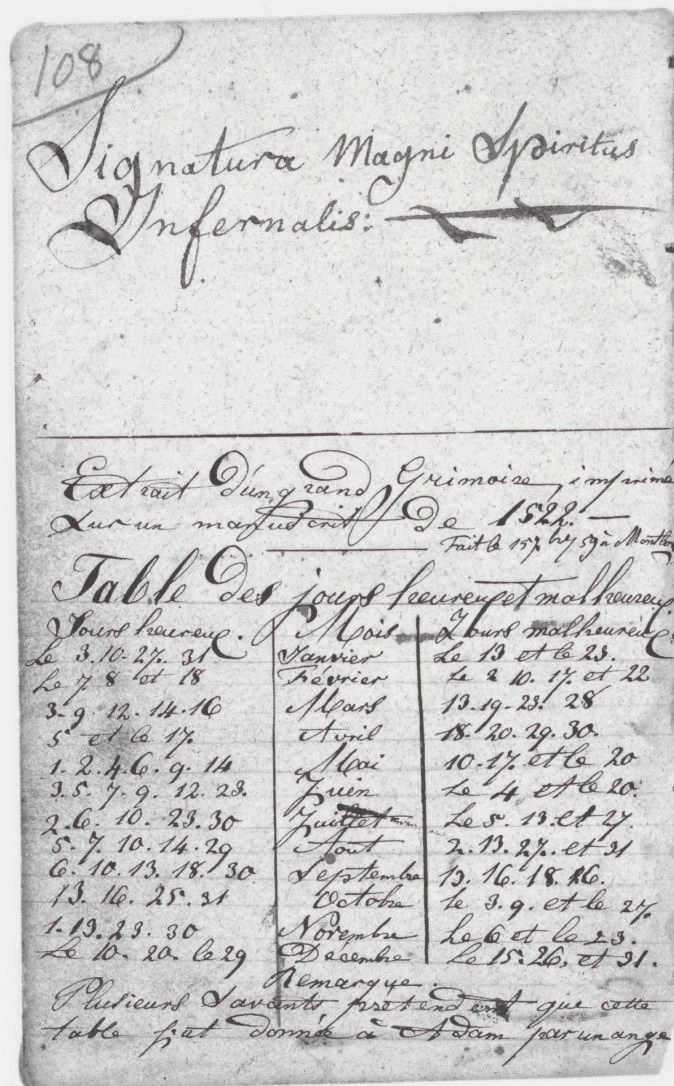 108
Signatura Magni Spiritus
Infernalis:
Extrait d'un grand Grimoire, imprimé
sur un manuscrit de 1522. —
Fait le 15 59 à
Table des jours heureux et malheureux.
Jours heureux. Mois Jours malheureux
Le 3. 10. 27. 31 Janvier Le 13 et le 23.
Le 7 8 et 18 Février Le 2 10. 17. et 22
3. 9. 12. 14. 16 Mars 13. 19. 23. 28
5 et le 17. Avril 18. 20. 29. 30.
1. 2. 4. 6. 9. 14 Mai 10. 17. et le 20
3. 5. 7. 9. 12. 23. Juin Le 4 et le 20.
2. 6. 10. 23. 30 Juillet Le 5. 13. et 27.
5. 7. 10. 14. 29 Aout 2. 13. 27. et 31
6. 10. 13. 18. 30 Septembre 13. 16. 18. 26.
13. 16. 25. 31 Octobre le 3. 9. et le 27.
1. 13. 23. 30 Novembre Le 6 et le 23.
Le 10. 20. le 29 Decembre Le 15. 26. et 31.
Remarque.
Plusieurs Savants pretendent que cette
table fut donnée à Adam par un ange